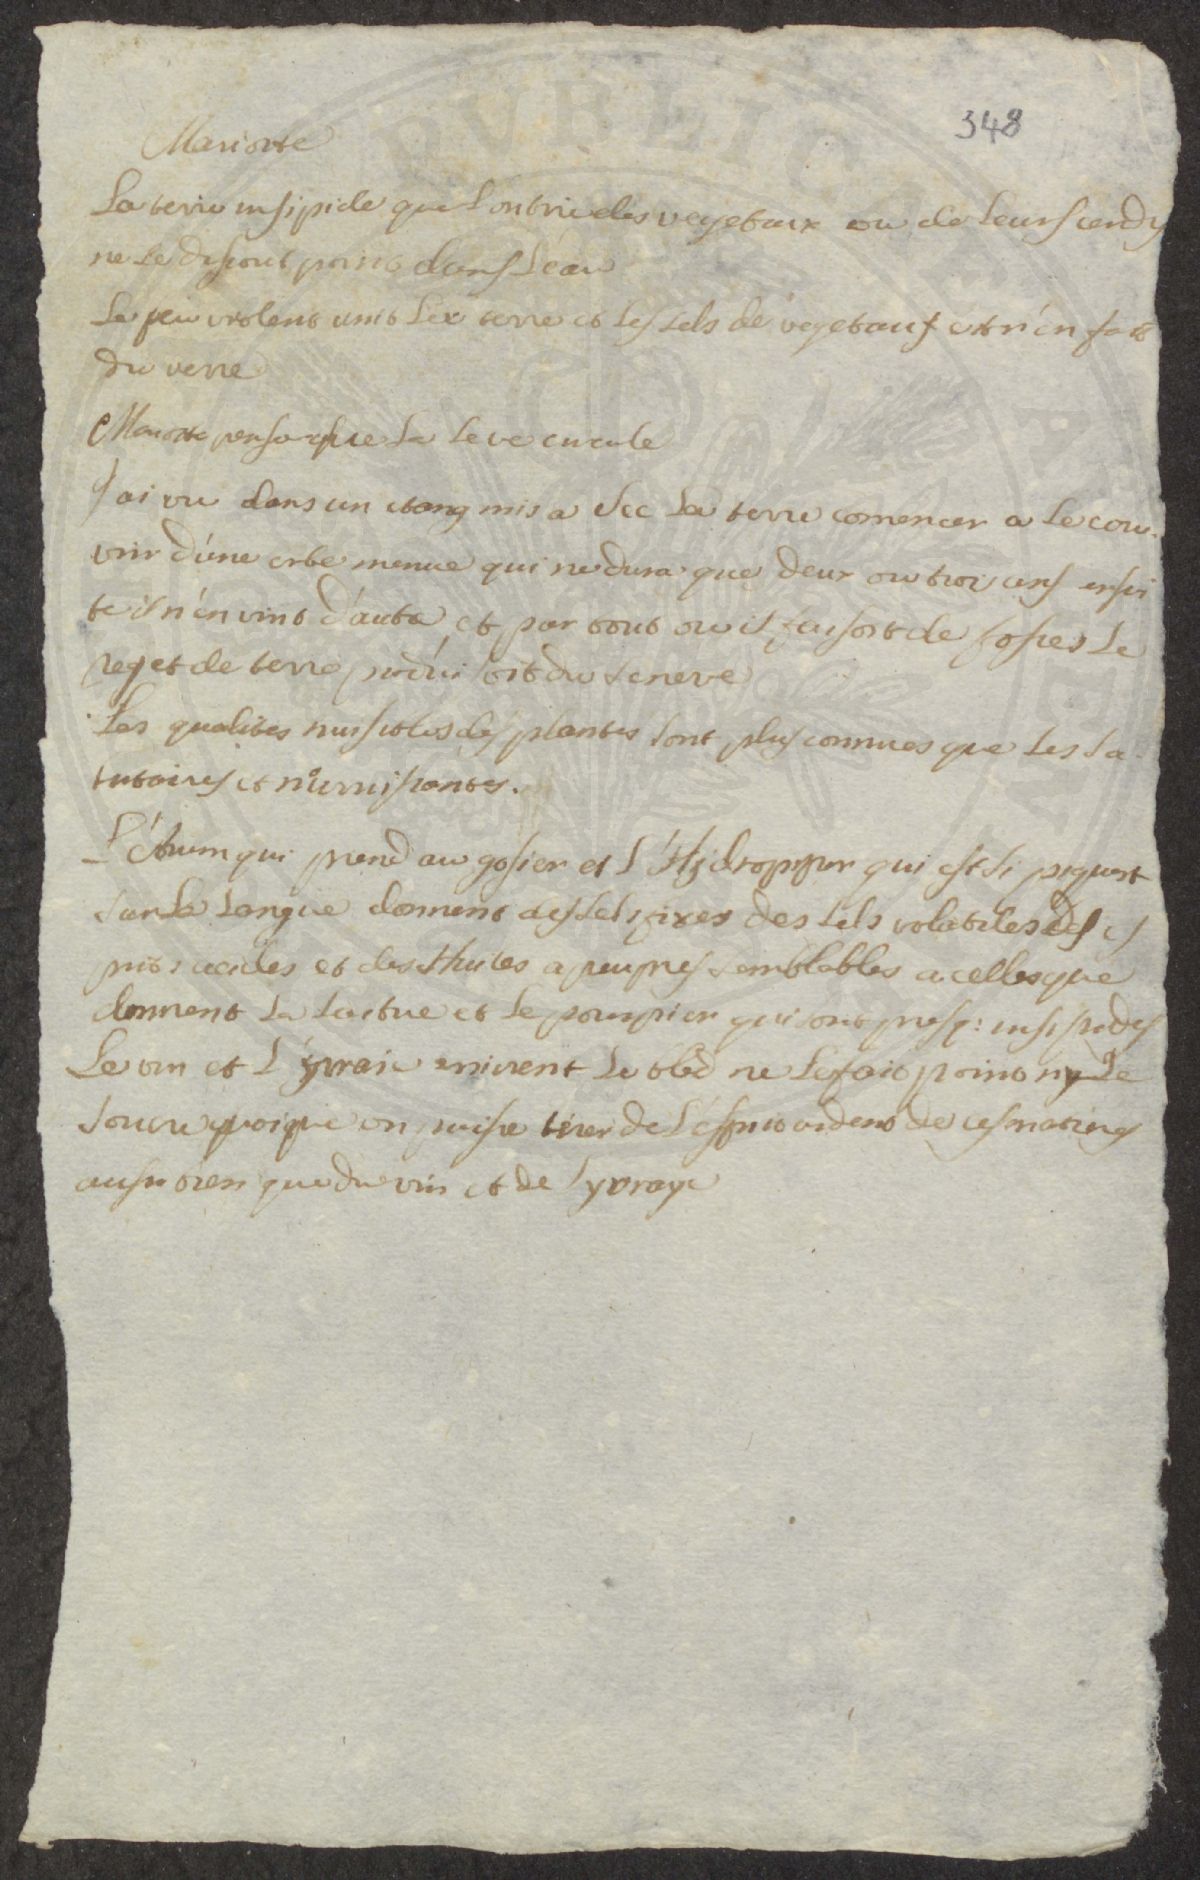 348
Mariotte
La terre insipide que l'on tire des vegetaux ou de leurs cendres
ne se dissout point dans l'eau
Le feu violent unit les terre et les sels de vegetaux et n'en fait
du verre
Mariotte pensa que la seve circule
J'ai vu dans un etang mis a sec la terre comencer a se cou-
vrir d'une erbe menue qui ne dura que deux ou trois ans ensui
te il n'en vint d'autre et par tout ou il faisoit de fosses le
rejet de terre produisoit du seneve
Les qualites nuisibles des plantes sont plus connues que les sa-
lutaires et nourrissantes.
L' qui prend au gosier et l'Hydropiper qui est si piquant
sur la langue donnent des sels fixes des sels volatiles des es
prits acides et des Huiles a peu pres semblables a celles que
donnent la laitue et le pourpier qui sont presq: insipides
Le vin et l'yvraie enivrent le bled ne le fait point ny le
sucre quoique on puisse tirer de l'esprit ardent de ces matieres
aussi bien que du vin et de l'yvraye